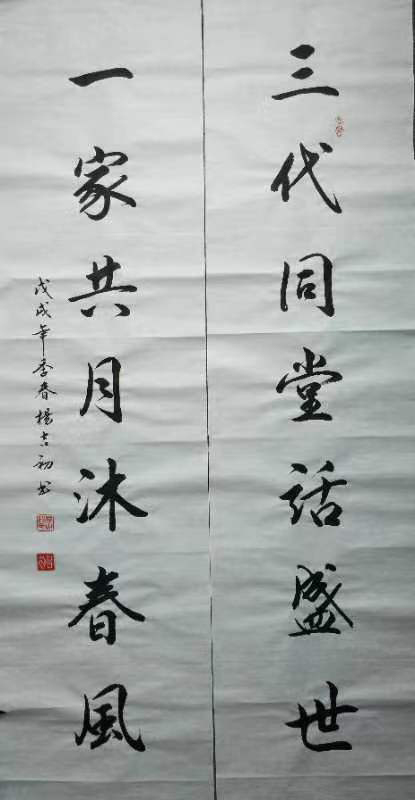 三代同堂話盛世
一家共月沐春風
戊戌年季春楊吉初書